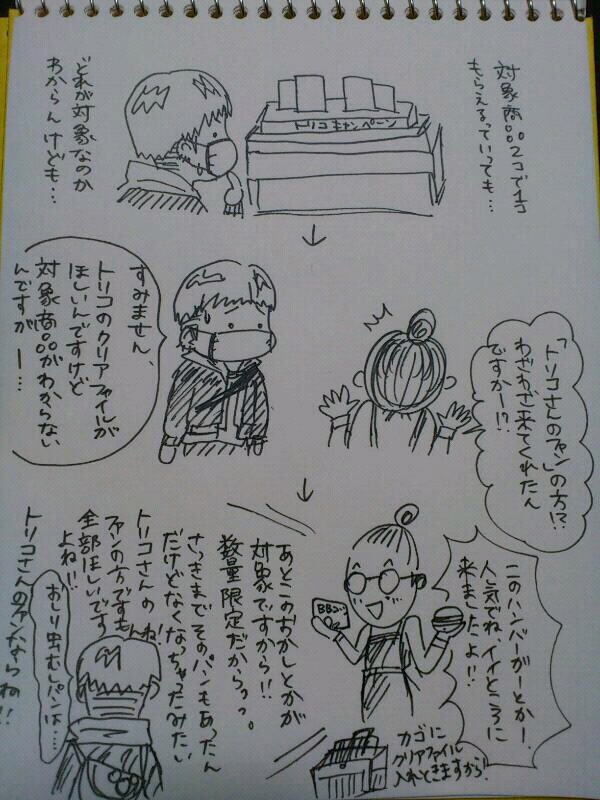 対象商品2コで1コ
もらえるっていっても…
トリコキャンペーン
どれが対象なのか
わからんけども…
「トリコさんのファン」の方!?
わざわざ来てくれたん
ですかー!?
すみません、
トリコのクリアファイルが
ほしいんですけど
対象商品がわからない
んですが ー…
このハンバーガーとか
人気でね、イイところに
来ましたよ!!
BBコーン
カゴに
クリアファイル
入れときますから!
あとこのおかしとかが
対象ですから!!
数量限定だからっっ。
さっきまでそのパンもあったん
だけどなくなっちゃったみたい
ね!
トリコさんの
ファンの方ですもん
全部ほしいです
よね!!
トリコさんのファンならね!!
おしり虫むしパンは…